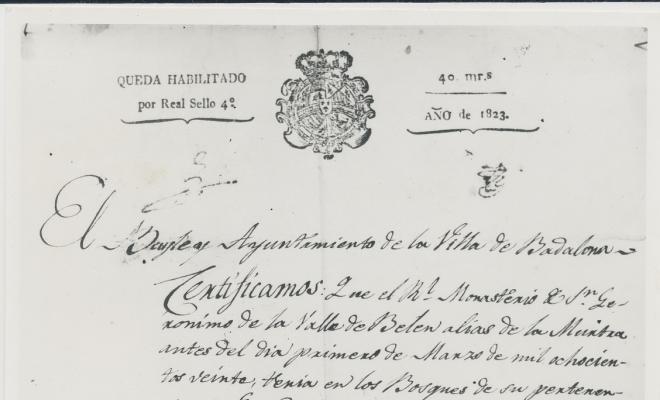 QUEDA HABILITADO
por Real Sello 4º.
40. mr.s
AÑO de 1823.
El Bayle y Ayuntamiento de la Villa de Badalona
Certificamos: Que el Rl. Monasterio de Sn. Ge-
ronimo de la Valle de Belen alias de la Murtra
antes del dia primero de Marzo de mil ochocien-
tos veinte, tenia en los Bosques de su pertenen-